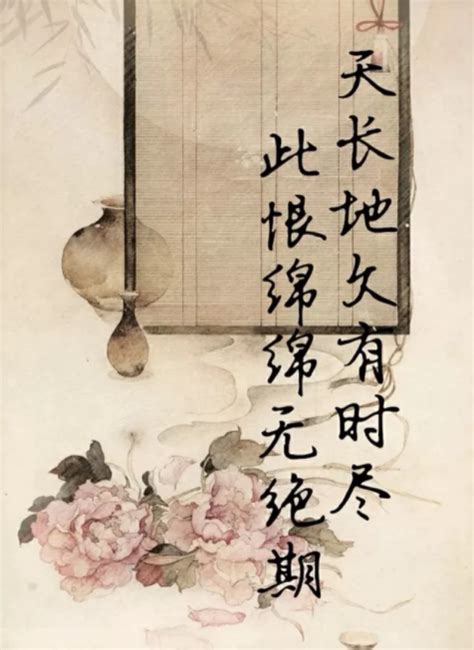 天长地久有时尽
此恨绵绵无绝期